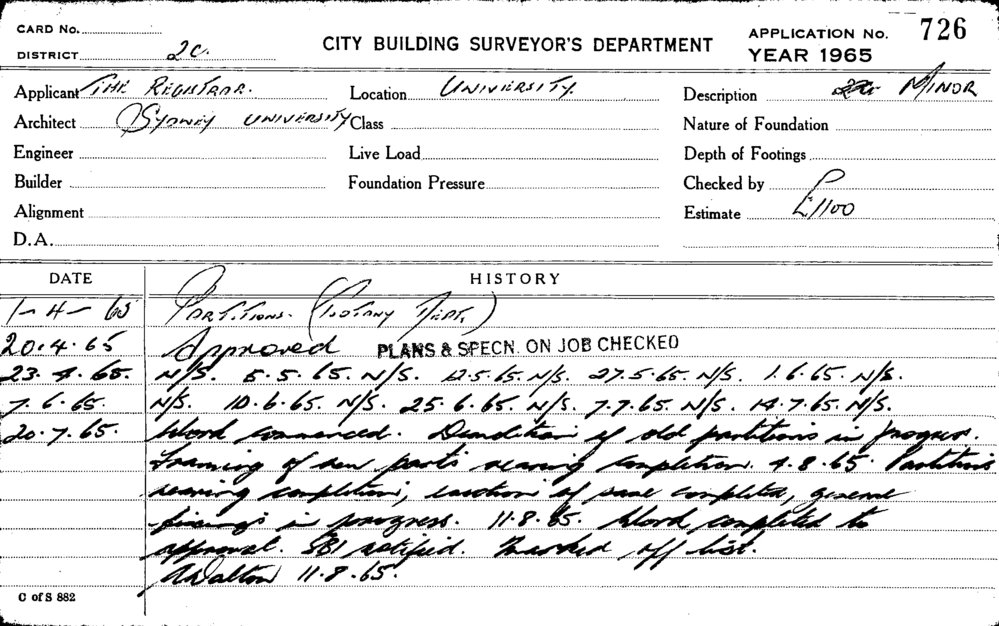 CARD No.
DISTRICT 2C.
CITY BUILDING SURVEYOR'S DEPARTMENT
APPLICATION No. 726
YEAR 1965
Applicant THE REGISTRAR. Location UNIVERSITY. Description MINOR
Architect SYDNEY UNIVERSITY Class Nature of Foundation
Engineer Live Load Depth of Footings
Builder Foundation Pressure Checked by
Alignment Estimate £1100
D.A.
DATE HISTORY
1-4-65 PARTITIONS. (BOTANY DEPT.)
20.4.65 Approved PLANS & SPECN. ON JOB CHECKED
23.4.65. N/S. 5.5.65. N/S. 12.5.65. N/S. 27.5.65. N/S. 1.6.65. N/S.
7.6.65. N/S. 10.6.65. N/S. 25.6.65. N/S. 7.7.65. N/S. 14.7.65. N/S.
20.7.65. Work commenced. Demolition of old partitions in progress.
Framing of new parts nearing completion. 4.8.65. Partitions
nearing completion, erection of same completed, general
fixings in progress. 11.8.65. Work completed to
approval. SBI notified. Marked off list.
A Dalton 11.8.65.
C of S 882